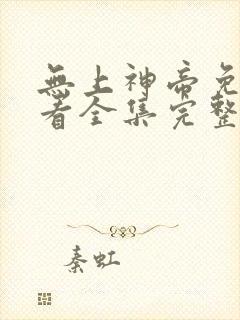 無上神帝免
看全集完整
秦虹